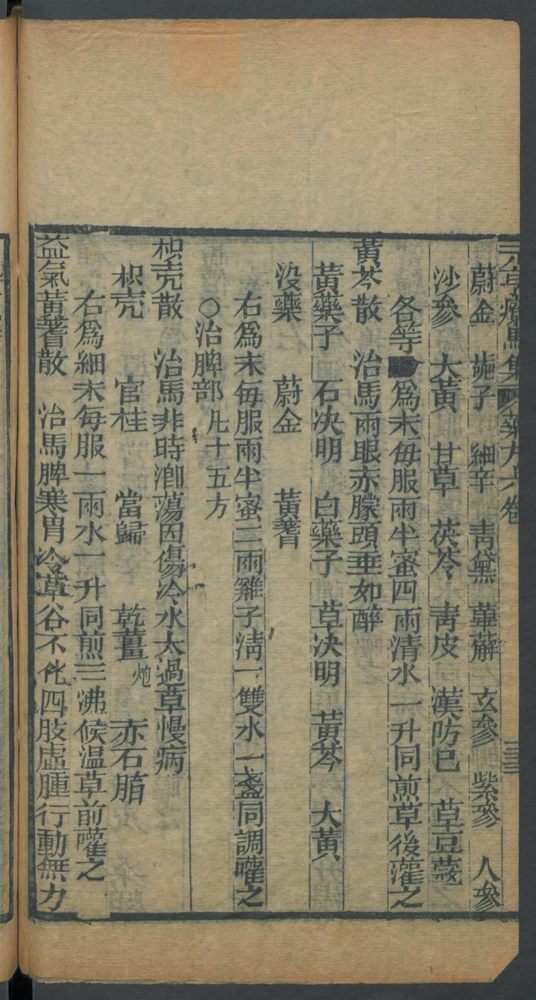 元亨療馬集 藥方六卷
蔚金 梔子 細辛 青黛 萆薢 玄參 紫參 人參
沙參 大黃 甘草 茯苓 青皮 漢防巳 草豆蔻
各等 爲末每服兩半蜜四兩清水一升同煎草後灌之
黃芩散 治馬兩眼赤朦頭垂如醉
黃藥子 石决明 白藥子 草决明 黃芩 大黃
没藥 蔚金 黃蓍
右爲末每服兩半蜜二兩雞子清一雙水一盞同調嚾之
○治脾部 凡十五方
枳壳散 治馬非時 蕩因傷冷水太過草慢病
枳壳 官桂 當歸 乾薑炮 赤石脂
右爲細末每服一兩水一升同煎三沸候温草前嚾之
益氣黃蓍散 治馬脾寒胃冷草谷不化四肢虛腫行動無力